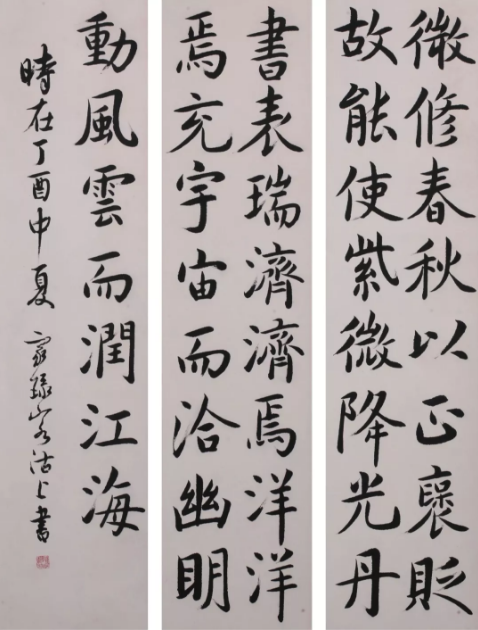 微修春秋以正褒貶
故能使紫微降光丹
書表瑞濟濟焉洋洋
焉充宇宙而洽幽明
動風雲而潤江海
時在丁酉中夏 沽上書